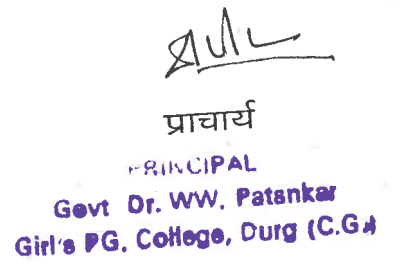 प्राचार्य
PRINCIPAL
Govt Dr. WW. Patankar
Girl's PG. College, Durg (C.G.)